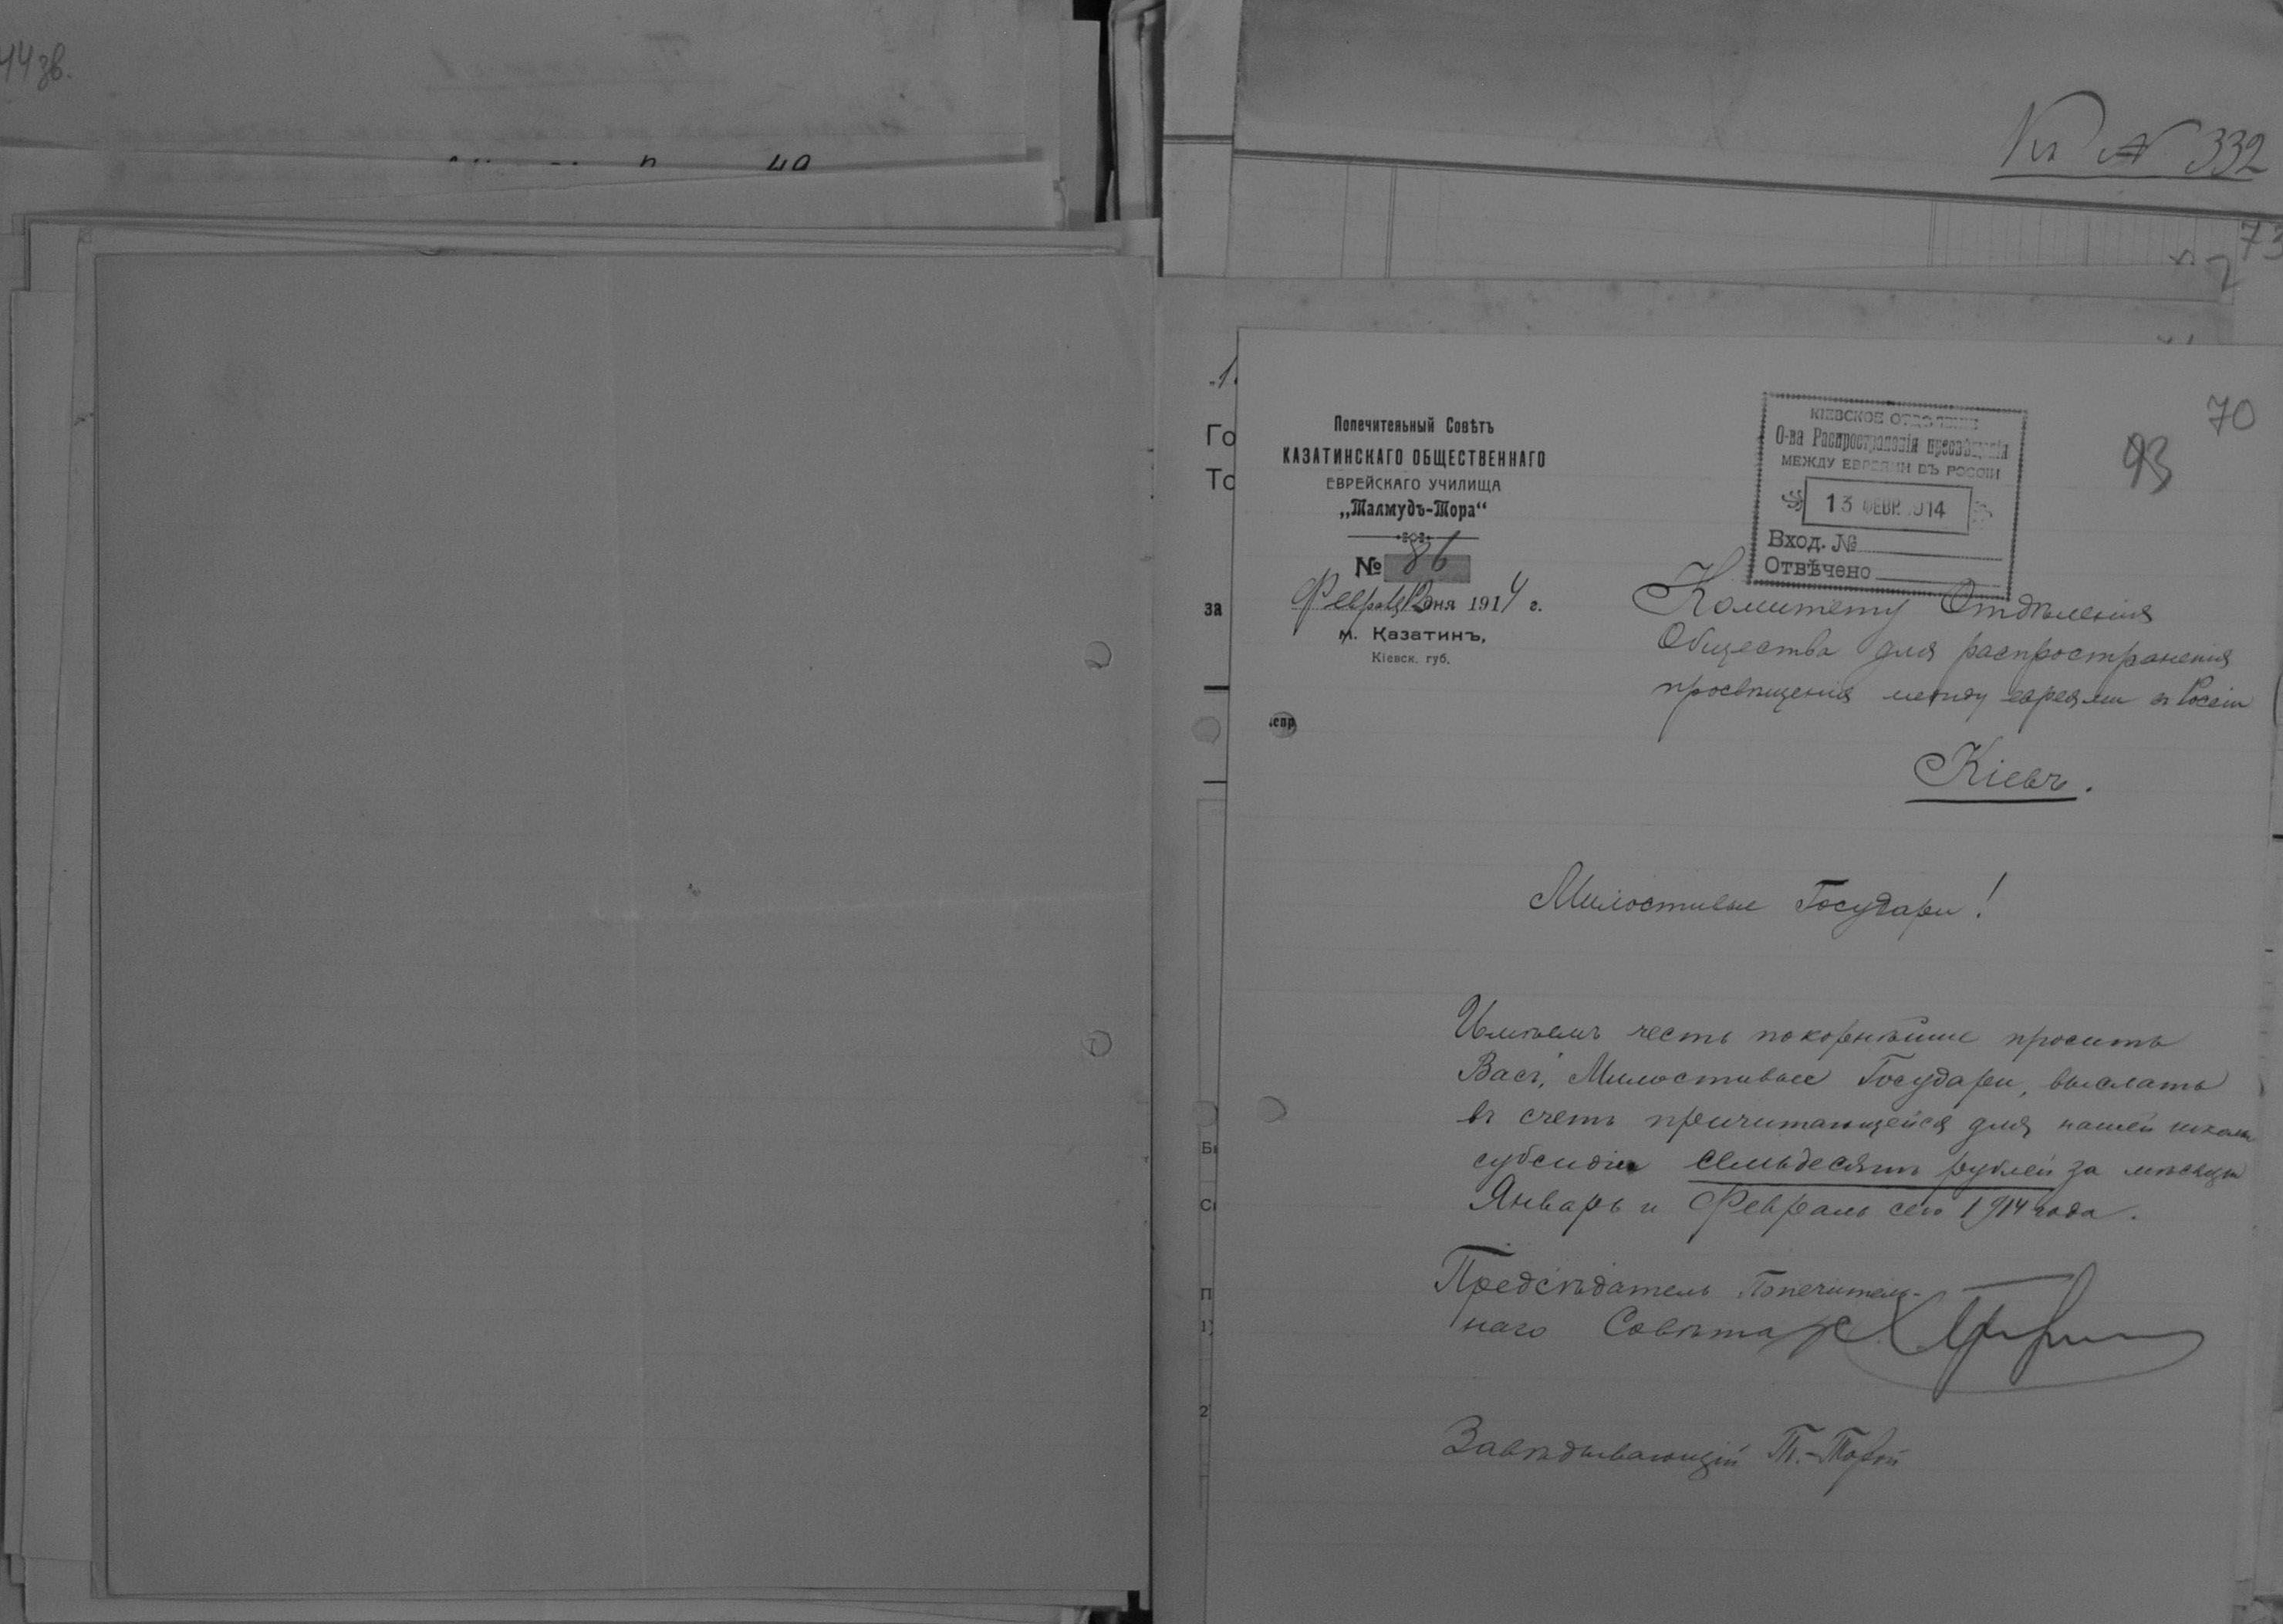 44 зв.
Къ № 332
73
70
93
Попечительный Совѣтъ
КАЗАТИНСКАГО ОБЩЕСТВЕННАГО
ЕВРЕЙСКАГО УЧИЛИЩА
„Талмудъ-Тора“
№ 86
Февраля 12 дня 1914 г.
м. Казатинъ,
Кіевск. губ.
КІЕВСКОЕ ОТДѢЛЕНІЕ
О-ва Распространенія просвѣщенія
МЕЖДУ ЕВРЕЯМИ ВЪ РОССІИ
13 ФЕВР. 1914
Вход. №
Отвѣчено
Комитету Отдѣленія
Общества для распространенія
просвѣщенія между евреями въ Россіи
Кіевъ.
Милостивые Государи!
Имѣемъ честь покорнѣйше просить
Васъ, Милостивые Государи, выслать
въ счетъ причитающейся для нашей школы
субсидіи семьдесятъ рублей за мѣсяцы
Январь и Февраль сего 1914 года.
Предсѣдатель Попечитель-
наго Совѣта
Завѣдывающій Т.-Торой
за
Го
То